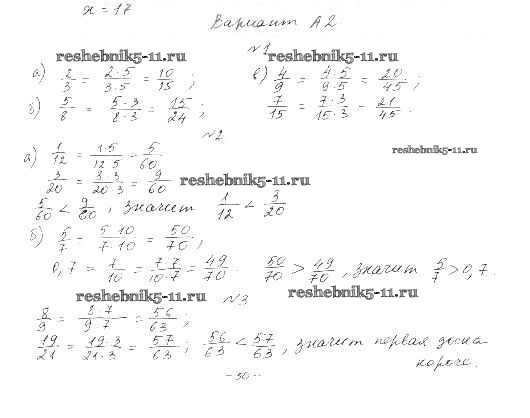 x = 17
Вариант А2
reshebnik5-11.ru
№1
reshebnik5-11.ru
а) 2/3 = 2·5/3·5 = 10/15 ;
в) 4/9 = 4·5/9·5 = 20/45 ;
б) 5/8 = 5·3/8·3 = 15/24 ;
7/15 = 7·3/15·3 = 21/45 .
№2
reshebnik5-11.ru
а) 1/12 = 1·5/12·5 = 5/60
3/20 = 3·3/20·3 = 9/60
reshebnik5-11.ru
5/60 < 9/60 , значит 1/12 < 3/20
б) 5/7 = 5·10/7·10 = 50/70 ;
0,7 = 7/10 = 7·7/10·7 = 49/70 . 50/70 > 49/70 , значит 5/7 > 0,7.
reshebnik5-11.ru
№3
reshebnik5-11.ru
8/9 = 8·7/9·7 = 56/63
19/21 = 19·3/21·3 = 57/63 ; 56/63 < 57/63 , значит первая доска
короче.
-50-